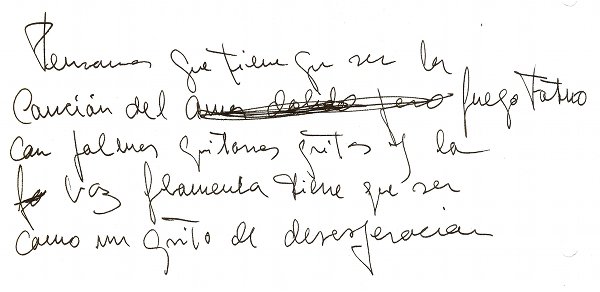 Pensamos que tiene que ser la
Canción del Amor dolido pero fuego fatuo
con palmas gitanas gritos y la
voz flamenca tiene que ser
como un grito de desesperacion